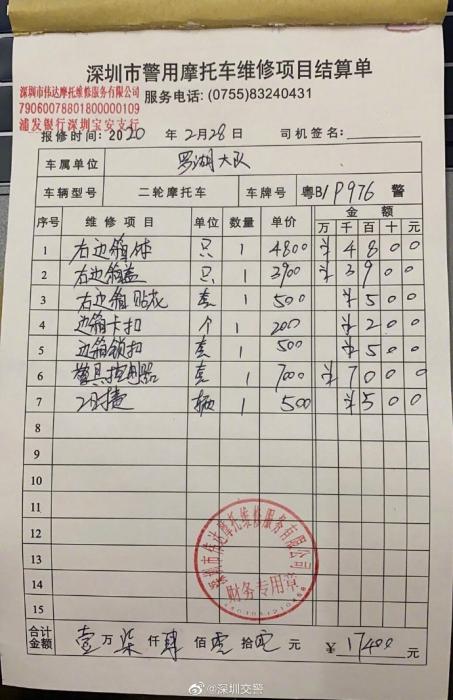 深圳市警用摩托车维修项目结算单
深圳市伟达摩托维修服务有限公司
79060078801800000109
浦发银行深圳宝安支行
服务电话: (0755)83240431
报修时间: 2020 年 2月 28日 司机签名:
车属单位 罗湖大队
车辆型号 二轮摩托车 车牌号 粤B/P976 警
序号 维修项目 单位 数量 单价 金额
万 千 百 十 元
1 右边箱体 只 1 4800 ¥ 4 8 0 0
2 右边箱盖 只 1 3900 ¥ 3 9 0 0
3 右边箱贴花 套 1 500 ¥ 5 0 0
4 边箱卡扣 个 1 200 ¥ 2 0 0
5 边箱锁扣 套 1 500 ¥ 5 0 0
6 警具控制器 套 1 7000 ¥ 7 0 0 0
7 工时费 辆 1 500 ¥ 5 0 0
8
9
10
11
12
13
14
15
深圳市伟达摩托维修服务有限公司
财务专用章
合计金额 壹 万 柒 仟 肆 佰 零 拾 零 元 ¥ 17400
@深圳交警